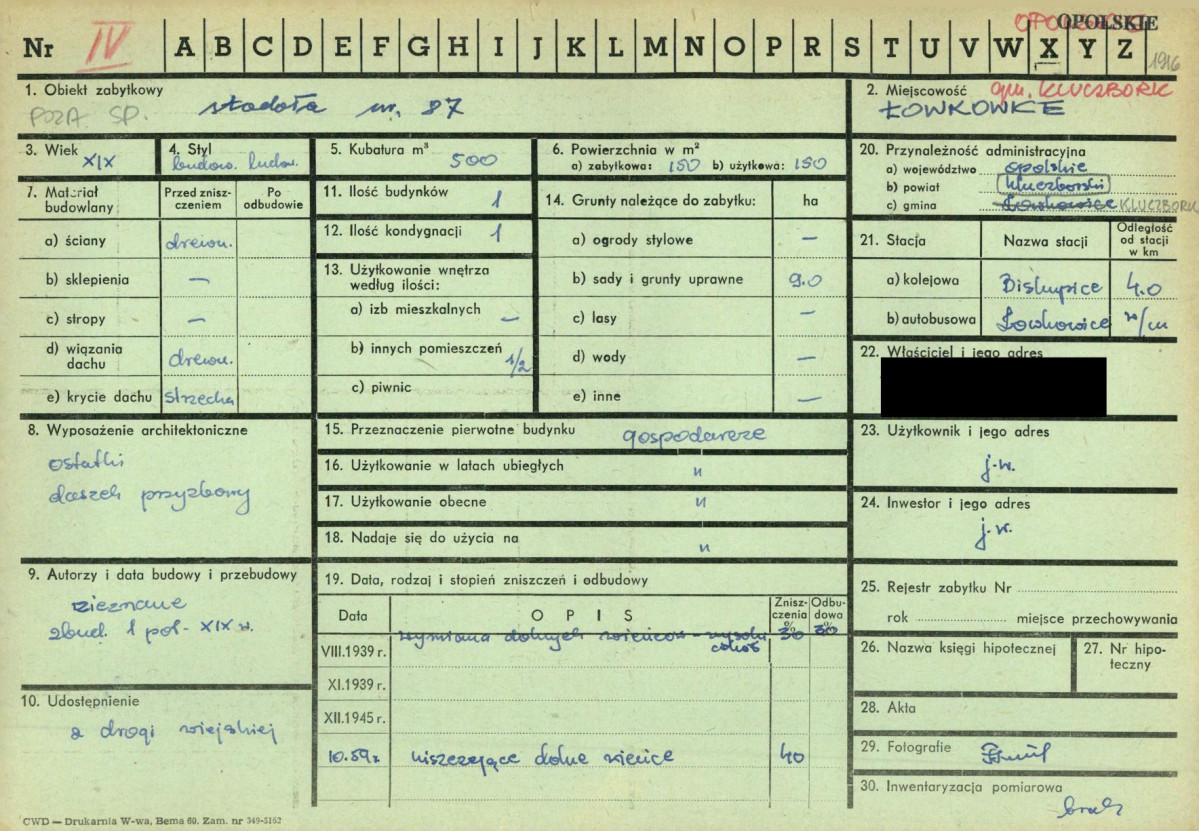 OPOLSKIE
Nr IV A B C D E F G H I J K L M N O P R S T U V W X Y Z
1916
1. Obiekt zabytkowy
POZA SP. stodoła nr. 87
2. Miejscowość gm. KLUCZBORK
ŁOWKOWICE
3. Wiek XIX
4. Styl budow. ludow.
5. Kubatura m³ 500
6. Powierzchnia w m²
a) zabytkowa: 150 b) użytkowa: 150
20. Przynależność administracyjna
a) województwo opolskie
b) powiat kluczborski
c) gmina Łowkowice KLUCZBORK
7. Materiał budowlany
Przed zniszczeniem
Po odbudowie
a) ściany drewn.
b) sklepienia —
c) stropy —
d) wiązania dachu drewn.
e) krycie dachu strzecha
11. Ilość budynków 1
12. Ilość kondygnacji 1
13. Użytkowanie wnętrza według ilości:
a) izb mieszkalnych —
b) innych pomieszczeń 1/2
c) piwnic
14. Grunty należące do zabytku: ha
a) ogrody stylowe —
b) sady i grunty uprawne 9.0
c) lasy —
d) wody —
e) inne —
21. Stacja
Nazwa stacji
Odległość od stacji w km
a) kolejowa Biskupice 4.0
b) autobusowa Łowkowice w/m
22. Właściciel i jego adres
8. Wyposażenie architektoniczne
ostatki
daszek przyzbowy
15. Przeznaczenie pierwotne budynku gospodarcze
16. Użytkowanie w latach ubiegłych "
17. Użytkowanie obecne "
18. Nadaje się do użycia na "
23. Użytkownik i jego adres
j.w.
24. Inwestor i jego adres
j.w.
9. Autorzy i data budowy i przebudowy
nieznane
zbud. 1 poł. XIX w.
19. Data, rodzaj i stopień zniszczeń i odbudowy
Data
O P I S
Zniszczenia %
Odbudowa %
wymiana dolnych wieńców – wysoki 30 30
VIII.1939 r.
XI.1939 r.
XII.1945 r.
10.59r niszczejące dolne wieńce 40
25. Rejestr zabytku Nr
rok miejsce przechowywania
26. Nazwa księgi hipotecznej
27. Nr hipoteczny
10. Udostępnienie
z drogi wiejskiej
28. Akta
29. Fotografie
30. Inwentaryzacja pomiarowa
brak
CWD — Drukarnia W-wa, Bema 60. Zam. nr 349-5162